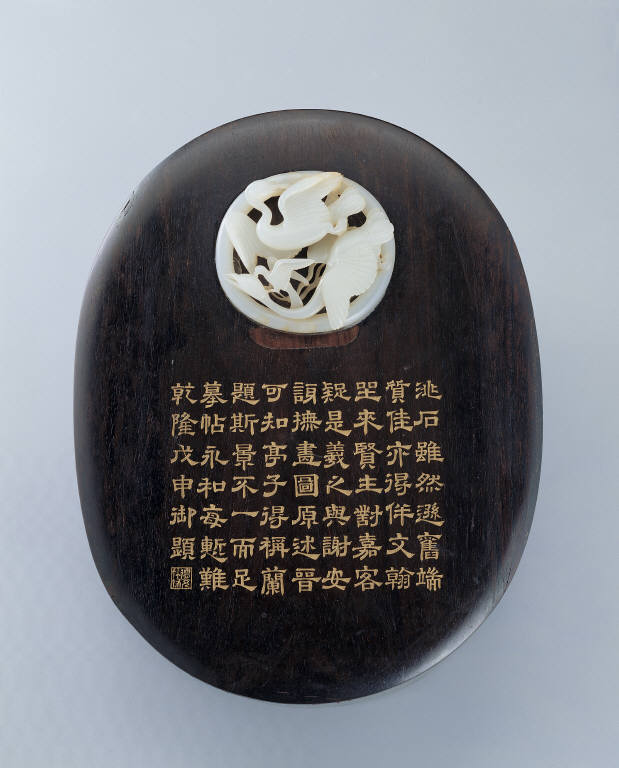 洮石雖然遜舊端
質佳亦得伴文翰
坐來賢主對嘉客
疑是羲之與謝安
撫畫圖原述晉
可知亭子得稱蘭
題斯景不一而足
摹帖永和每慙難
乾隆戊申御題